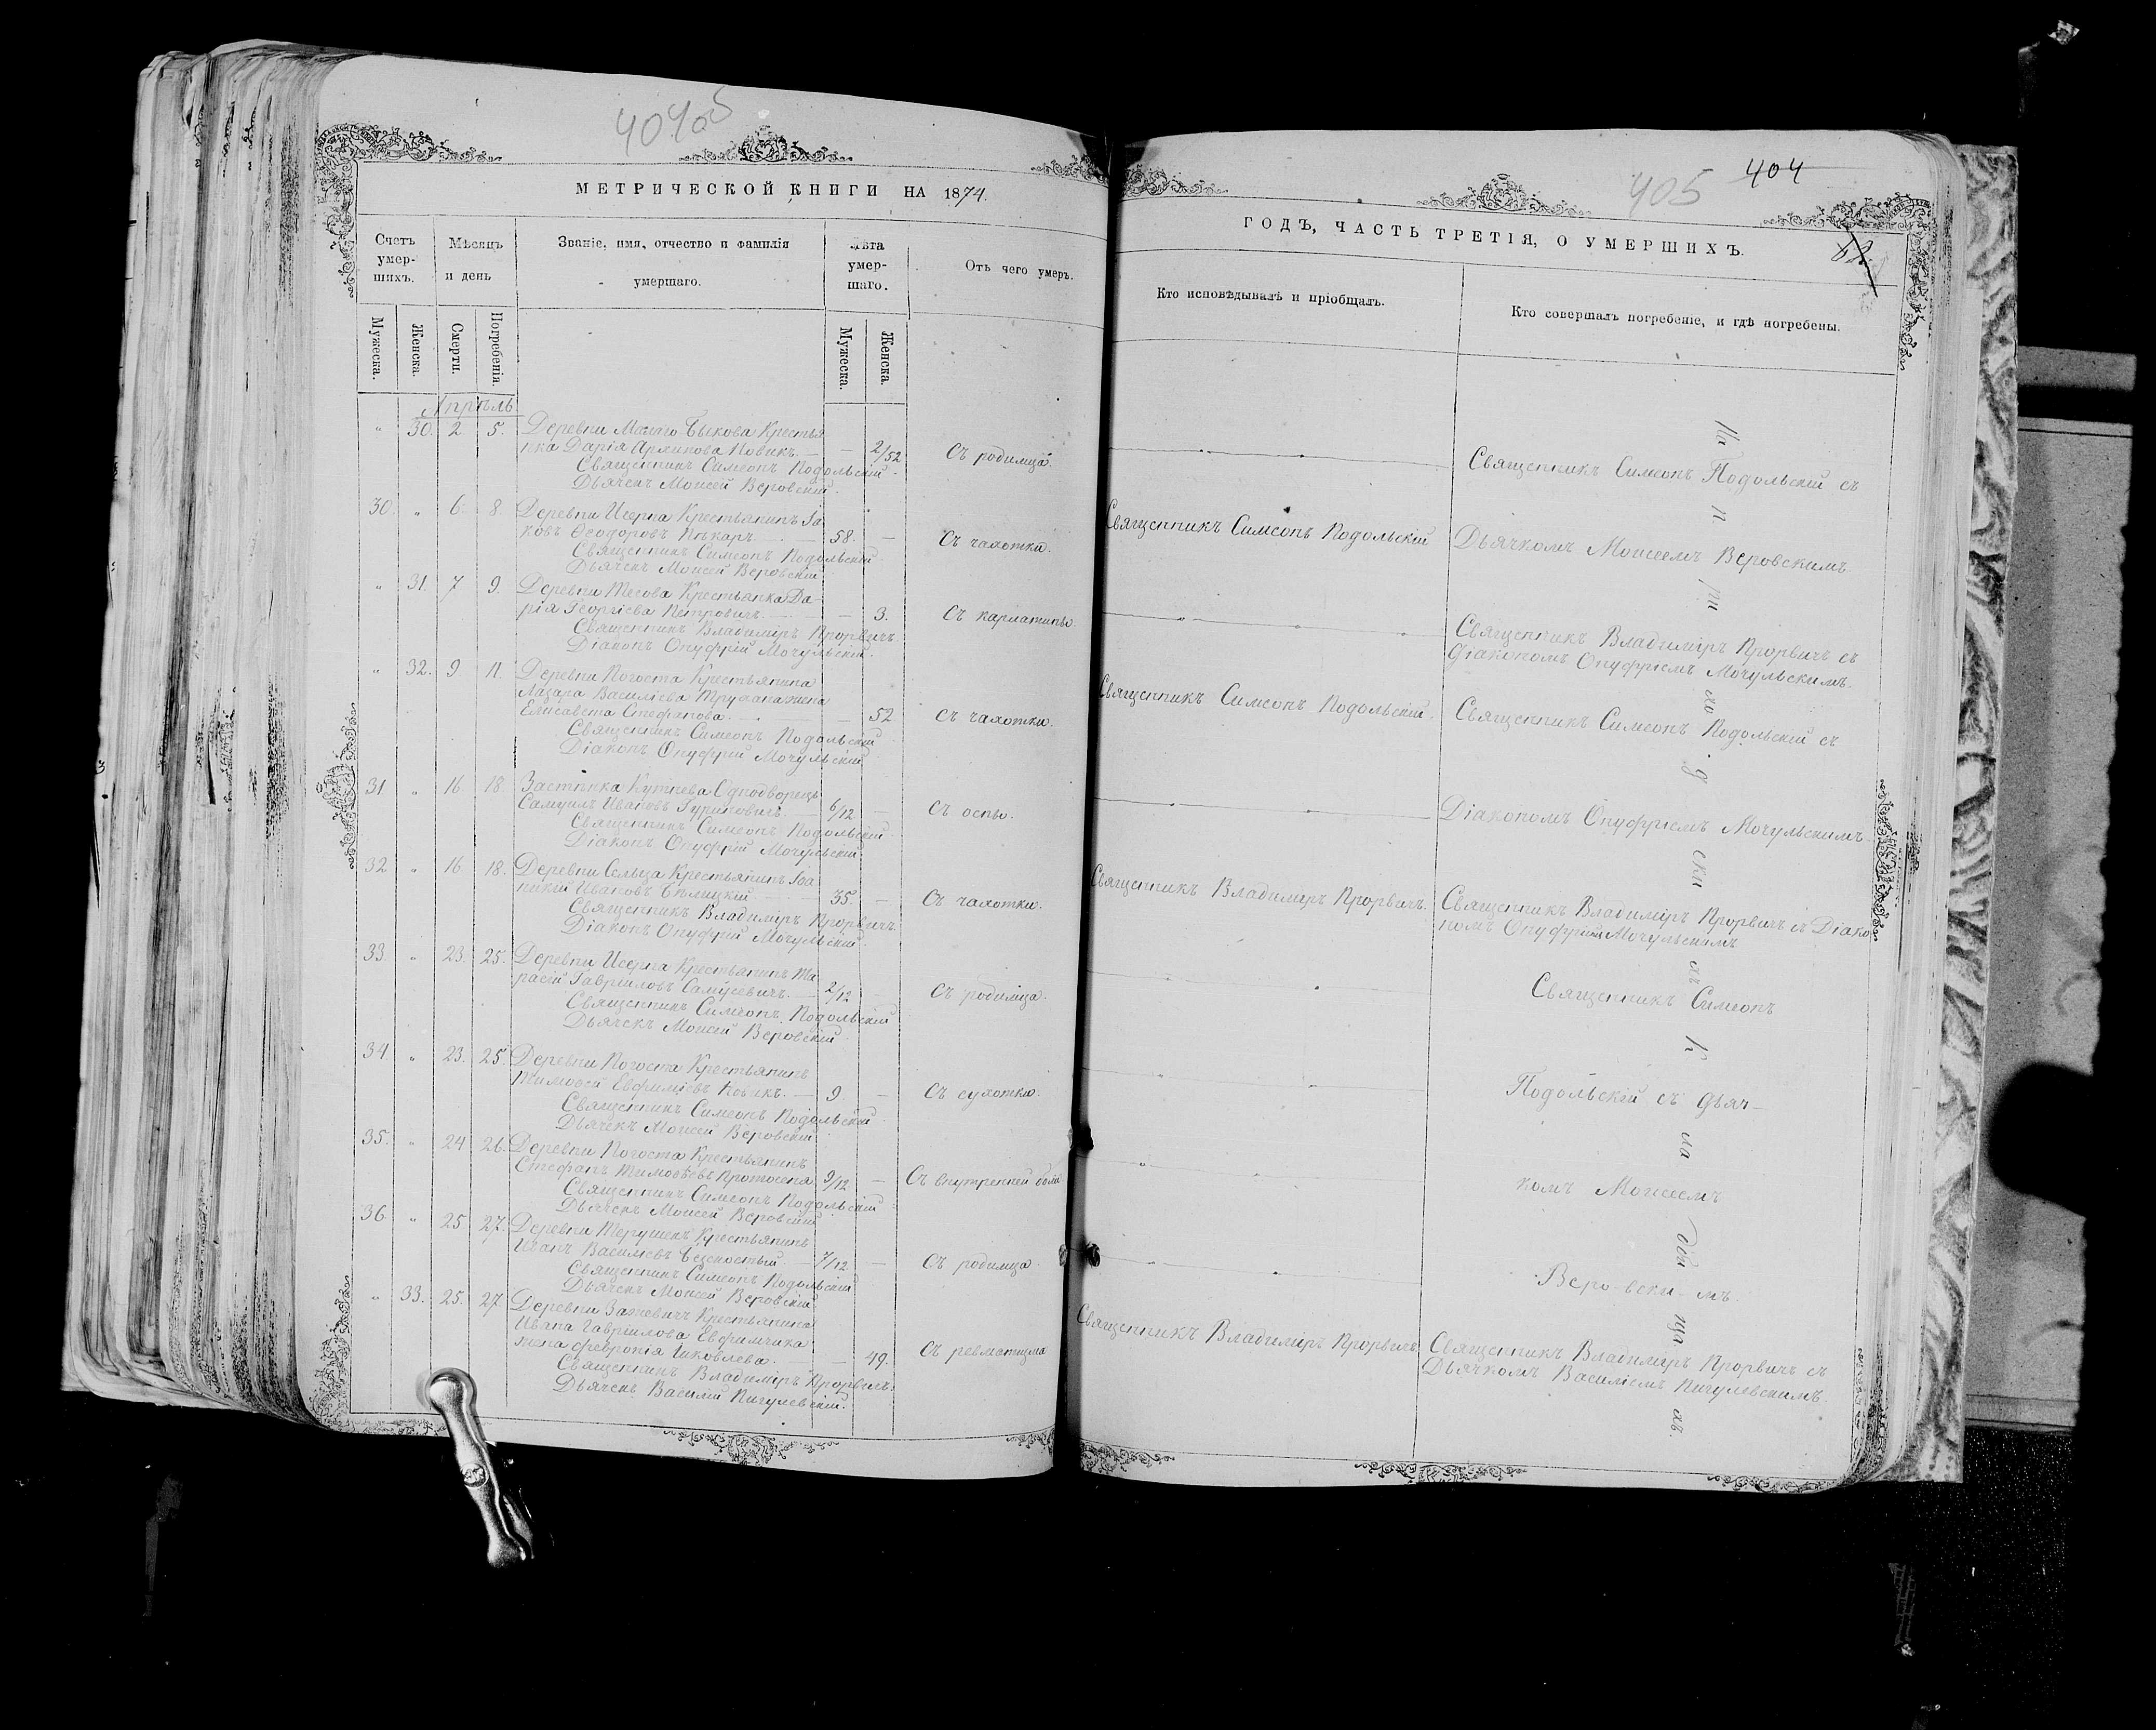 405
МЕТРИЧЕСКОЙ КНИГИ НА 1874.
Счетъ умер-шихъ.
Мѣсяцъ и день
Званіе, имя, отчество и фамилія умершаго.
Лѣта умер-шаго.
Отъ чего умеръ.
Мужеска.
Женска.
Смерти.
Погребенія.
Мужеска.
Женска.
Апрѣль
" 30. 2 5. Деревни Крестья-
нка Дарія Новикъ. — 2/52 Съ родимца.
Священникъ Симеонъ Подольскій
Дьячекъ Моисей Веровскій.
30. " 6. 8. Деревни Исерна Крестьянинъ Іа-
ковъ Ѳеодоровъ 58. — Съ чахотки.
Священникъ Симеонъ Подольскій
Дьячекъ Моисей Веровскій
" 31. 7 9. Деревни Крестьянка Да-
рія Георгіева Петровичъ. — 3. Съ
Священникъ Владиміръ Прорвичъ.
Діаконъ Онуфрій Мочульскій.
" 32. 9 11. Деревни Погоста Крестьянина
Лазаря Василіева жена
Елисавета Стефанова. — 52 Съ чахотки.
Священникъ Симеонъ Подольскій
Діаконъ Онуфрій Мочульскій
31 " 16 18. Однодворецъ
Самуилъ Ивановъ 6/12 — Съ оспы.
Священникъ Симеонъ Подольскій
Діаконъ Онуфрій Мочульскій
32 " 16 18. Деревни Сельца Крестьянинъ Іоа-
никій Ивановъ 35. — Съ чахотки.
Священникъ Владиміръ Прорвичъ.
Діаконъ Онуфрій Мочульскій.
33. " 23. 25. Деревни Исерна Крестьянинъ Та-
расій Гавріиловъ Самусевичъ. — 2/12 — Съ родимца.
Священникъ Симеонъ Подольскій
Дьячекъ Моисей Веровскій
34 " 23. 25. Деревни Погоста Крестьянинъ
Тимоѳей Евфиміевъ 9. — Съ сухотки.
Священникъ Симеонъ Подольскій
Дьячекъ Моисей Веровскій
35. " 24 26. Деревни Погоста Крестьянинъ
Стефанъ Тимоѳѣевъ 9/12 — Съ внутренней боли
Священникъ Симеонъ Подольскій
Дьячекъ Моисей Веровскій
36. " 25 27. Деревни Крестьянинъ
Иванъ Василіевъ 7/12 — Съ родимца.
Священникъ Симеонъ Подольскій
Дьячекъ Моисей Веровскій
" 33. 25. 27. Деревни Крестьянина
Ивана Гавріилова
жена Февронія Іаковлева. — 49. Съ ревматизма
Священникъ Владиміръ Прорвичъ.
Дьячекъ Василій Пигулевскій.
404
405
ГОДЪ, ЧАСТЬ ТРЕТІЯ, О УМЕРШИХЪ.
Кто исповѣдывалъ и пріобщалъ.
Кто совершалъ погребеніе, и гдѣ погребены.
Священникъ Симеонъ Подольскій съ
Священникъ Симеонъ Подольскій
Дьячкомъ Моисеемъ Веровскимъ
Священникъ Владиміръ Прорвичъ съ
Діакономъ Онуфріемъ Мочульскимъ.
Священникъ Симеонъ Подольскій.
Священникъ Симеонъ Подольскій съ
Діакономъ Онуфріемъ Мочульскимъ
Священникъ Владиміръ Прорвичъ.
Священникъ Владиміръ Прорвичъ съ Діако
номъ Онуфріемъ Мочульскимъ
Священникъ Симеонъ
Подольскій съ Дьяч-
комъ Моисеемъ
Веро-вски-мъ.
Священникъ Владиміръ Прорвичъ
Священникъ Владиміръ Прорвичъ съ
Дьячкомъ Василіемъ Пигулевскимъ.
На приходскихъ кладбищахъ.